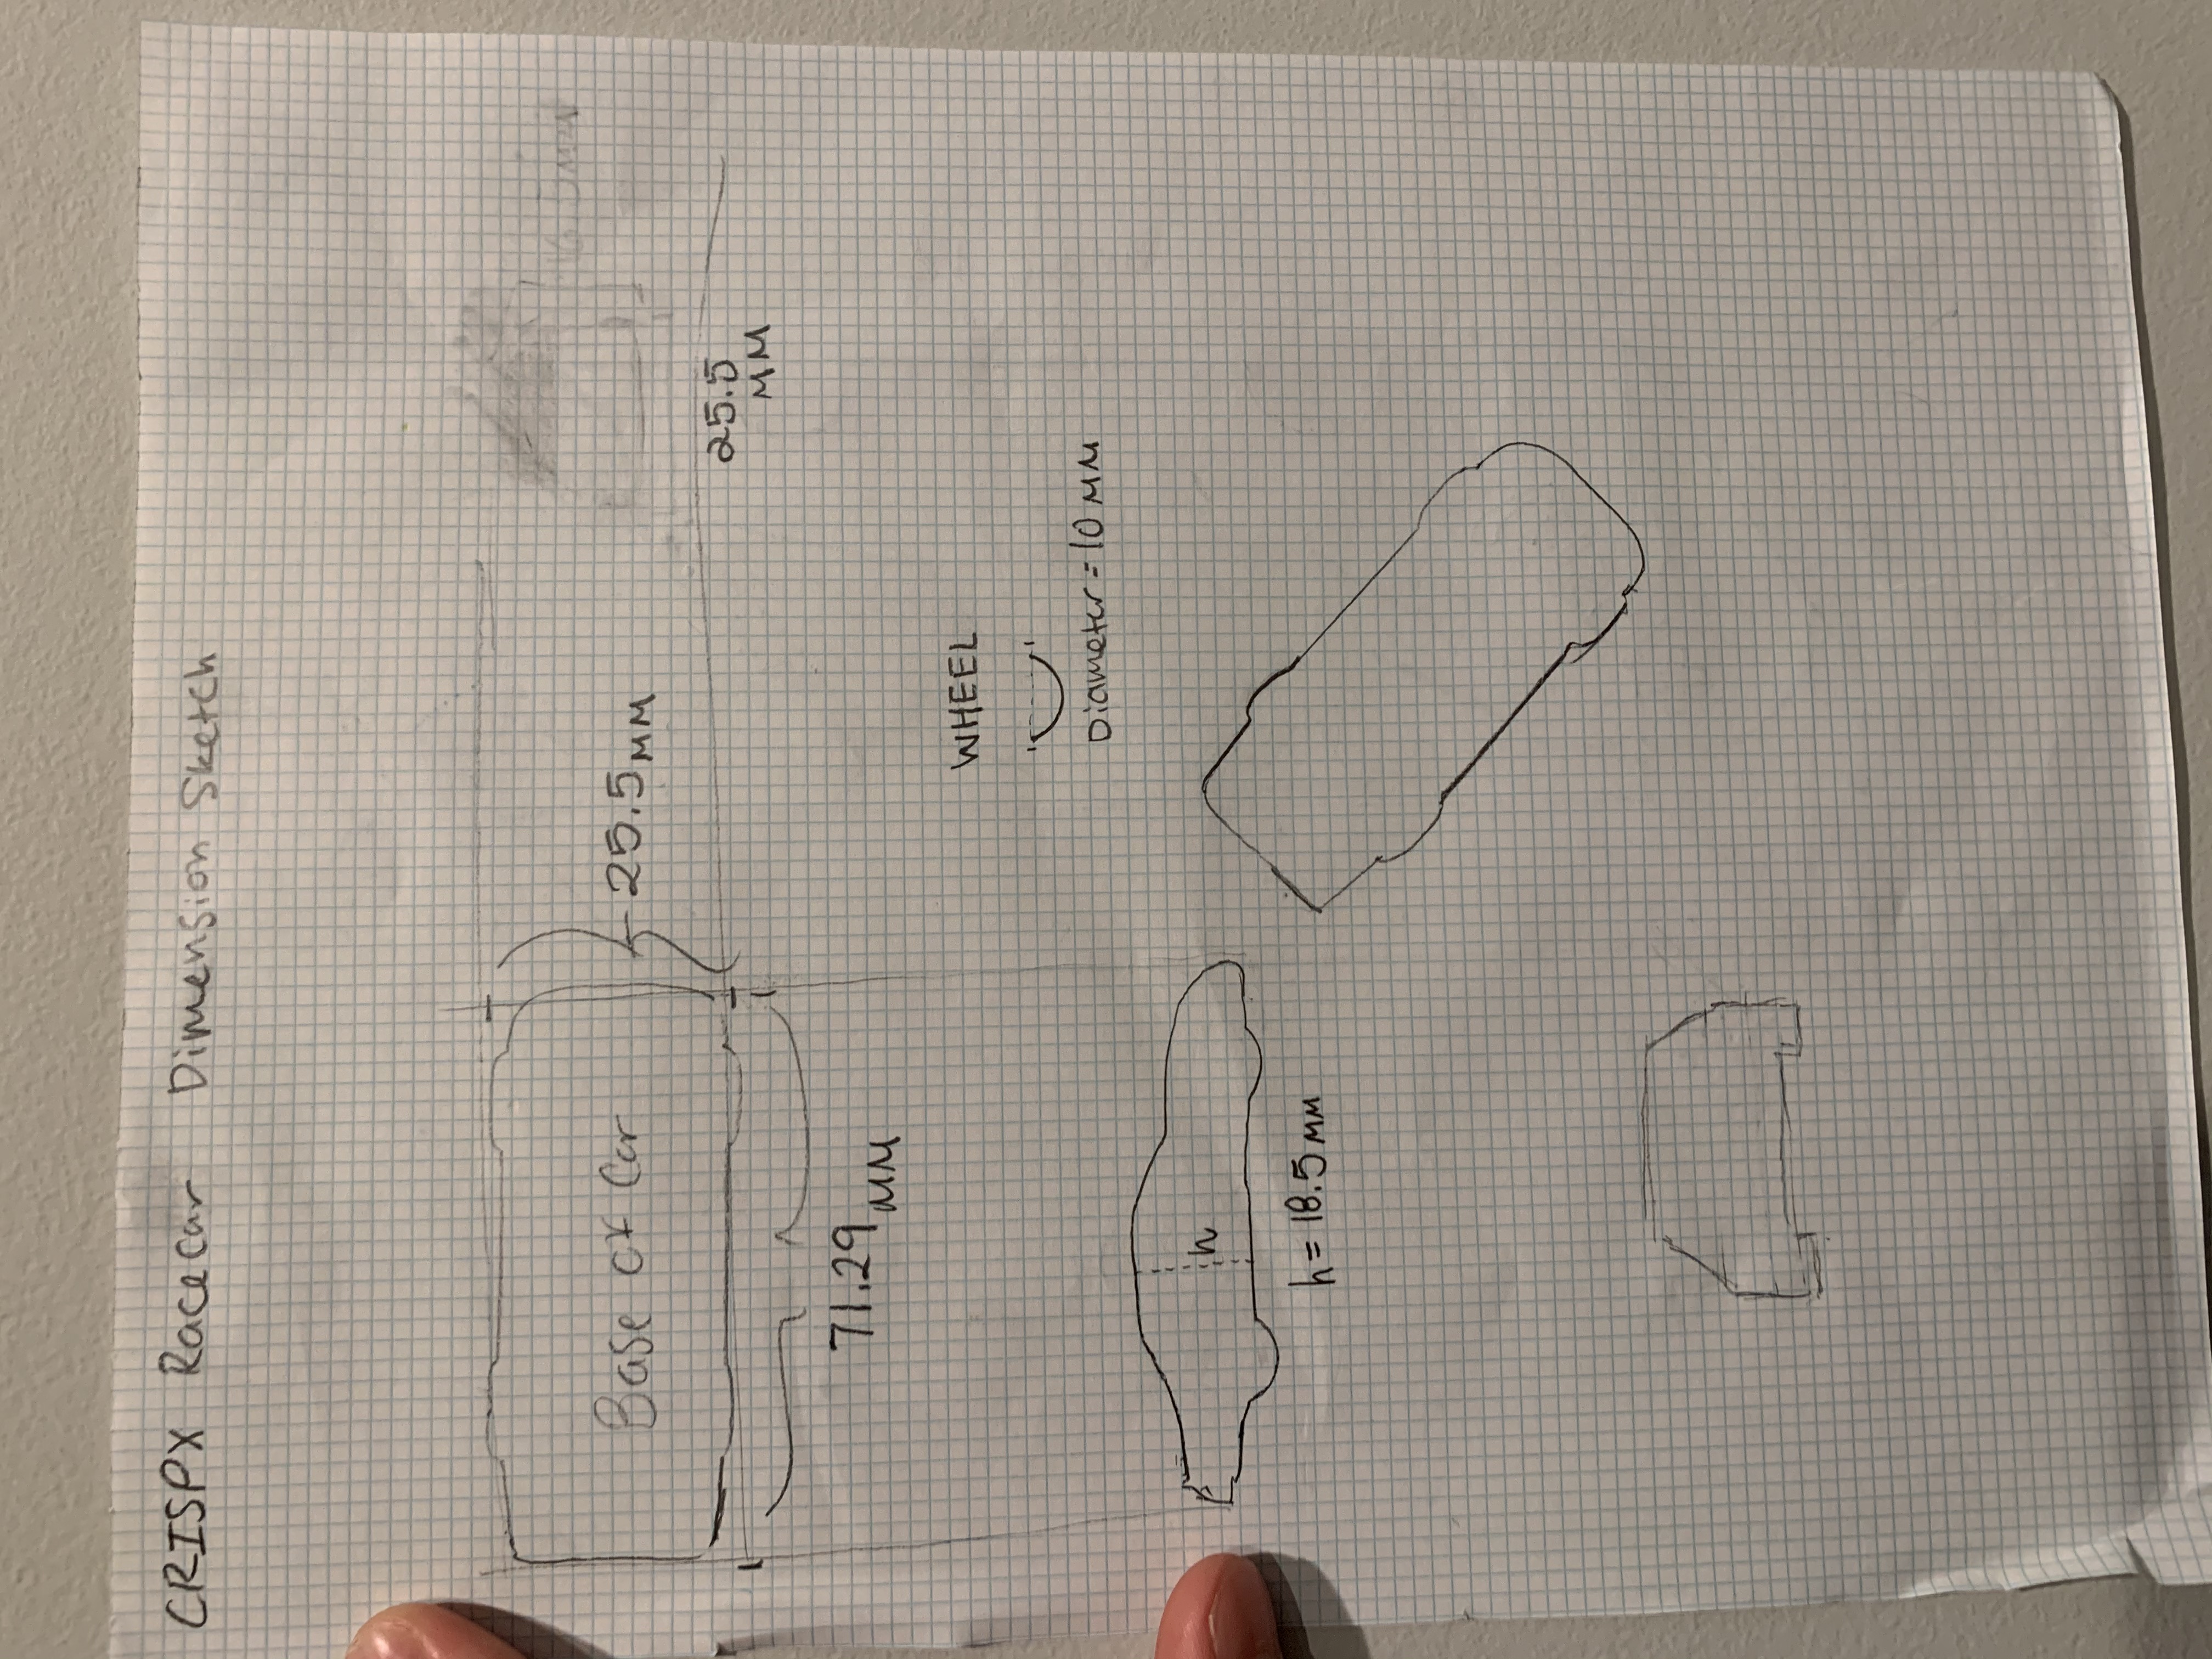 CRISPX Racecar Dimension Sketch
Base of Car
25.5 MM
25.5
MM
71.29 MM
WHEEL
Diameter = 10 MM
h
h = 18.5 MM